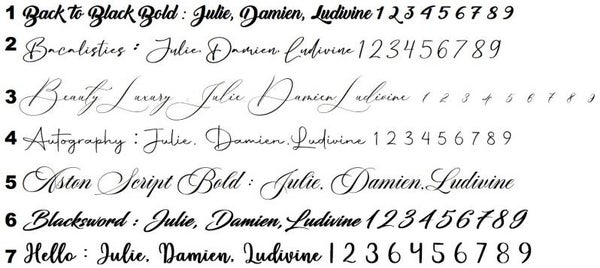 1 Back to Black Bold : Julie, Damien, Ludivine 1 2 3 4 5 6 7 8 9
2 Bacalisties : Julie, Damien, Ludivine 1 2 3 4 5 6 7 8 9
3 Beauty Luxury Julie Damien Ludivine 1 2 3 4 5 6 7 8 9
4 Autography : Julie, Damien, Ludivine 1 2 3 4 5 6 7 8 9
5 Aston Script Bold : Julie, Damien, Ludivine
6 Blacksword : Julie, Damien, Ludivine 1 2 3 4 5 6 7 8 9
7 Hello : Julie, Damien, Ludivine 1 2 3 6 4 5 6 7 8 9